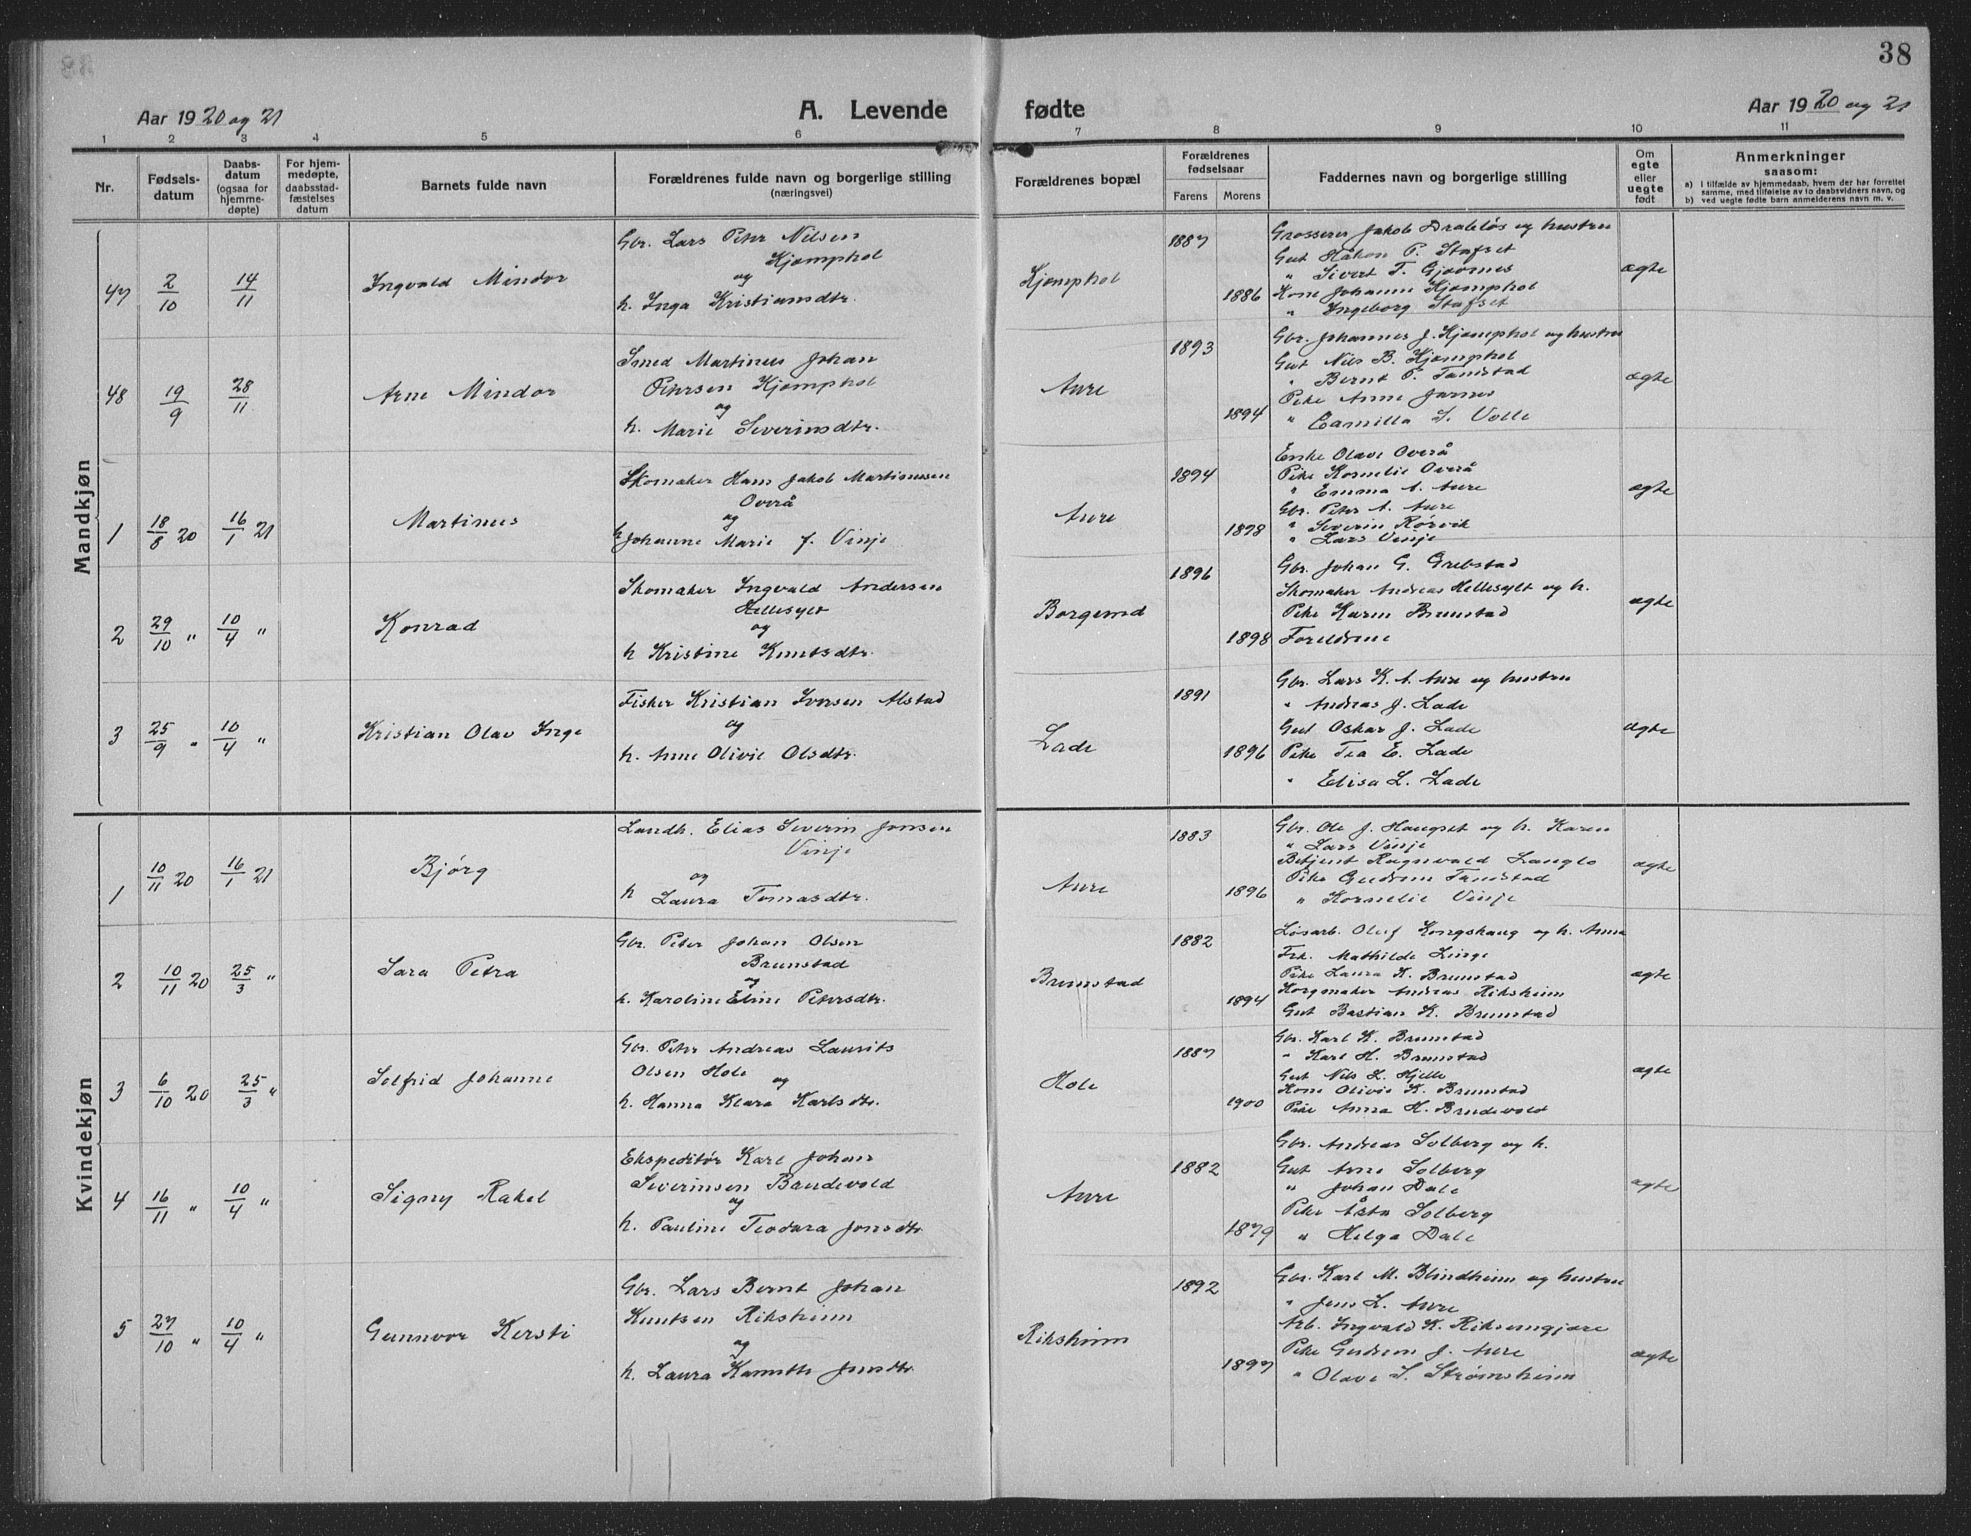 38
Aar 1920 og 21
A. Levende fødte
Aar 1920 og 21
1 2 3 4 5 6 7 8 9 10 11
Nr.
Fødsels-
datum
Daabs-
datum
(ogsaa for
hjemme-
døpte)
For hjem-
medøpte,
daabsstad-
fæstelses
datum
Barnets fulde navn
Forældrenes fulde navn og borgerlige stilling
(næringsvei)
Forældrenes bopæl
Forældrenes
fødselsaar
Farens
Morens
Faddernes navn og borgerlige stilling
Om
egte
eller
uegte
født
Anmerkninger
saasom:
a) I tilfælde av hjemmedaab, hvem der har forrettet
samme, med tilføielse av to daabsvidners navn, og
b) ved uegte fødte barn anmelderens navn m. v.
Mandkjøn
47 2/10 14/11 Ingvald Mindor
Gbr. Lars Petr Nilsen
Kjemphol
og
h. Inga Kristiansdtr.
Kjemphol
1887
1886
Grosserer Jakob Drabløs og hustru
Gut Håkon P. Stafset
" Sivert T. Gjævenes
Kone Johanne Kjemphol
" Ingeborg Stafset
ægte
48 19/9 28/11 Arne Mindor
Smed Martinus Johan
Petersen Kjemphol
og
h. Marie Severinsdtr.
Aure
1893
1894
Gbr. Johannes J. Kjemphol og hustru
Gut Nils B. Kjemphol
" Bernt P. Tandstad
Pike Anne Jarnes
" Camilla S. Volle
ægte
1 18/8 20 16/1 21 Martinus
Skomaker Hans Jakob Martinussen
Overå
og
h. Johanne Marie f. Vinje
Aure
1894
1898
Enke Olave Overå
Pike Kornelie Overå
" Emma A. Aure
Gbr. Peter A. Aure
" Severin Rørvik
" Lars Vinje
ægte
2 29/10 " 10/4 " Konrad
Skomaker Ingvald Andersen
Hellesylt
og
h Kristine Knutsdtr.
Borgemd
1896
1898
Gbr. Johan G. Grebstad
Skomaker Andreas Hellesylt og h.
Pike Karen Brunstad
Foreldrene
ægte
3 25/9 " 10/4 " Kristian Olav Inge
Fisker Kristian Iversen Alstad
og
h. Anne Olivie Olsdtr.
Lade
1891
1896
Gbr. Lars K. A. Aure og hustru
" Andreas J. Lade
Gut Oskar J. Lade
Pike Tea E. Lade
" Elisa L. Lade
ægte
Kvindekjøn
1 10/11 20 16/1 21 Bjørg
Landh. Elias Severin Jonsen
Vinje
og
h Laura Tomasdtr.
Aure
1883
1896
Gbr. Ole J. Haugset og h. Karen
" Lars Vinje
Betjent Ragnvald Langlo
Pike Gudrun Tandstad
" Kornelie Vinje
ægte
2 10/11 20 25/3 " Sara Petra
Gbr. Peter Johan Olsen
Brunstad
og
h. Karoline Eline Petersdtr.
Brunstad
1882
1894
Løsarb. Oluf Kongshaug og h. Anna
Frk. Mathilde Linge
Pike Laura K. Brunstad
Korgmaker Andreas Riksheim
Gut Bastian K. Brunstad
ægte
3 6/10 20 25/3 " Solfrid Johanne
Gbr. Peter Andreas Laurits
Olsen Hole
og
h. Hanna Klara Karlsdtr.
Hole
1887
1900
Gbr. Karl K. Brunstad
" Karl H. Brunstad
Gut Nils K. Hjelle
Kone Olivie K. Brunstad
Pike Anna H. Brudevold
ægte
4 16/11 " 10/4 " Signy Rakel
Ekspeditør Karl Johan
Severinsen Brudevold
og
h. Pauline Teodara Jonsdtr
Aure
1882
1879
Gbr. Andreas Solberg og h.
Gut Arne Solberg
" Johan Dale
Pike Åsta Solberg
" Helga Dale
ægte
5 27/10 " 10/4 " Gunnvor Kersti
Gbr. Lars Bernt Johan
Knutsen Riksheim
og
h. Laura Jensdtr
Riksheim
1892
1897
Gbr. Karl M. Blindheim og hustru
" Jens L. Aure
Arb. Ingvald K. Riksemgjære
Pike Gudrun J. Aure
" Olave S. Strømsheim
ægte